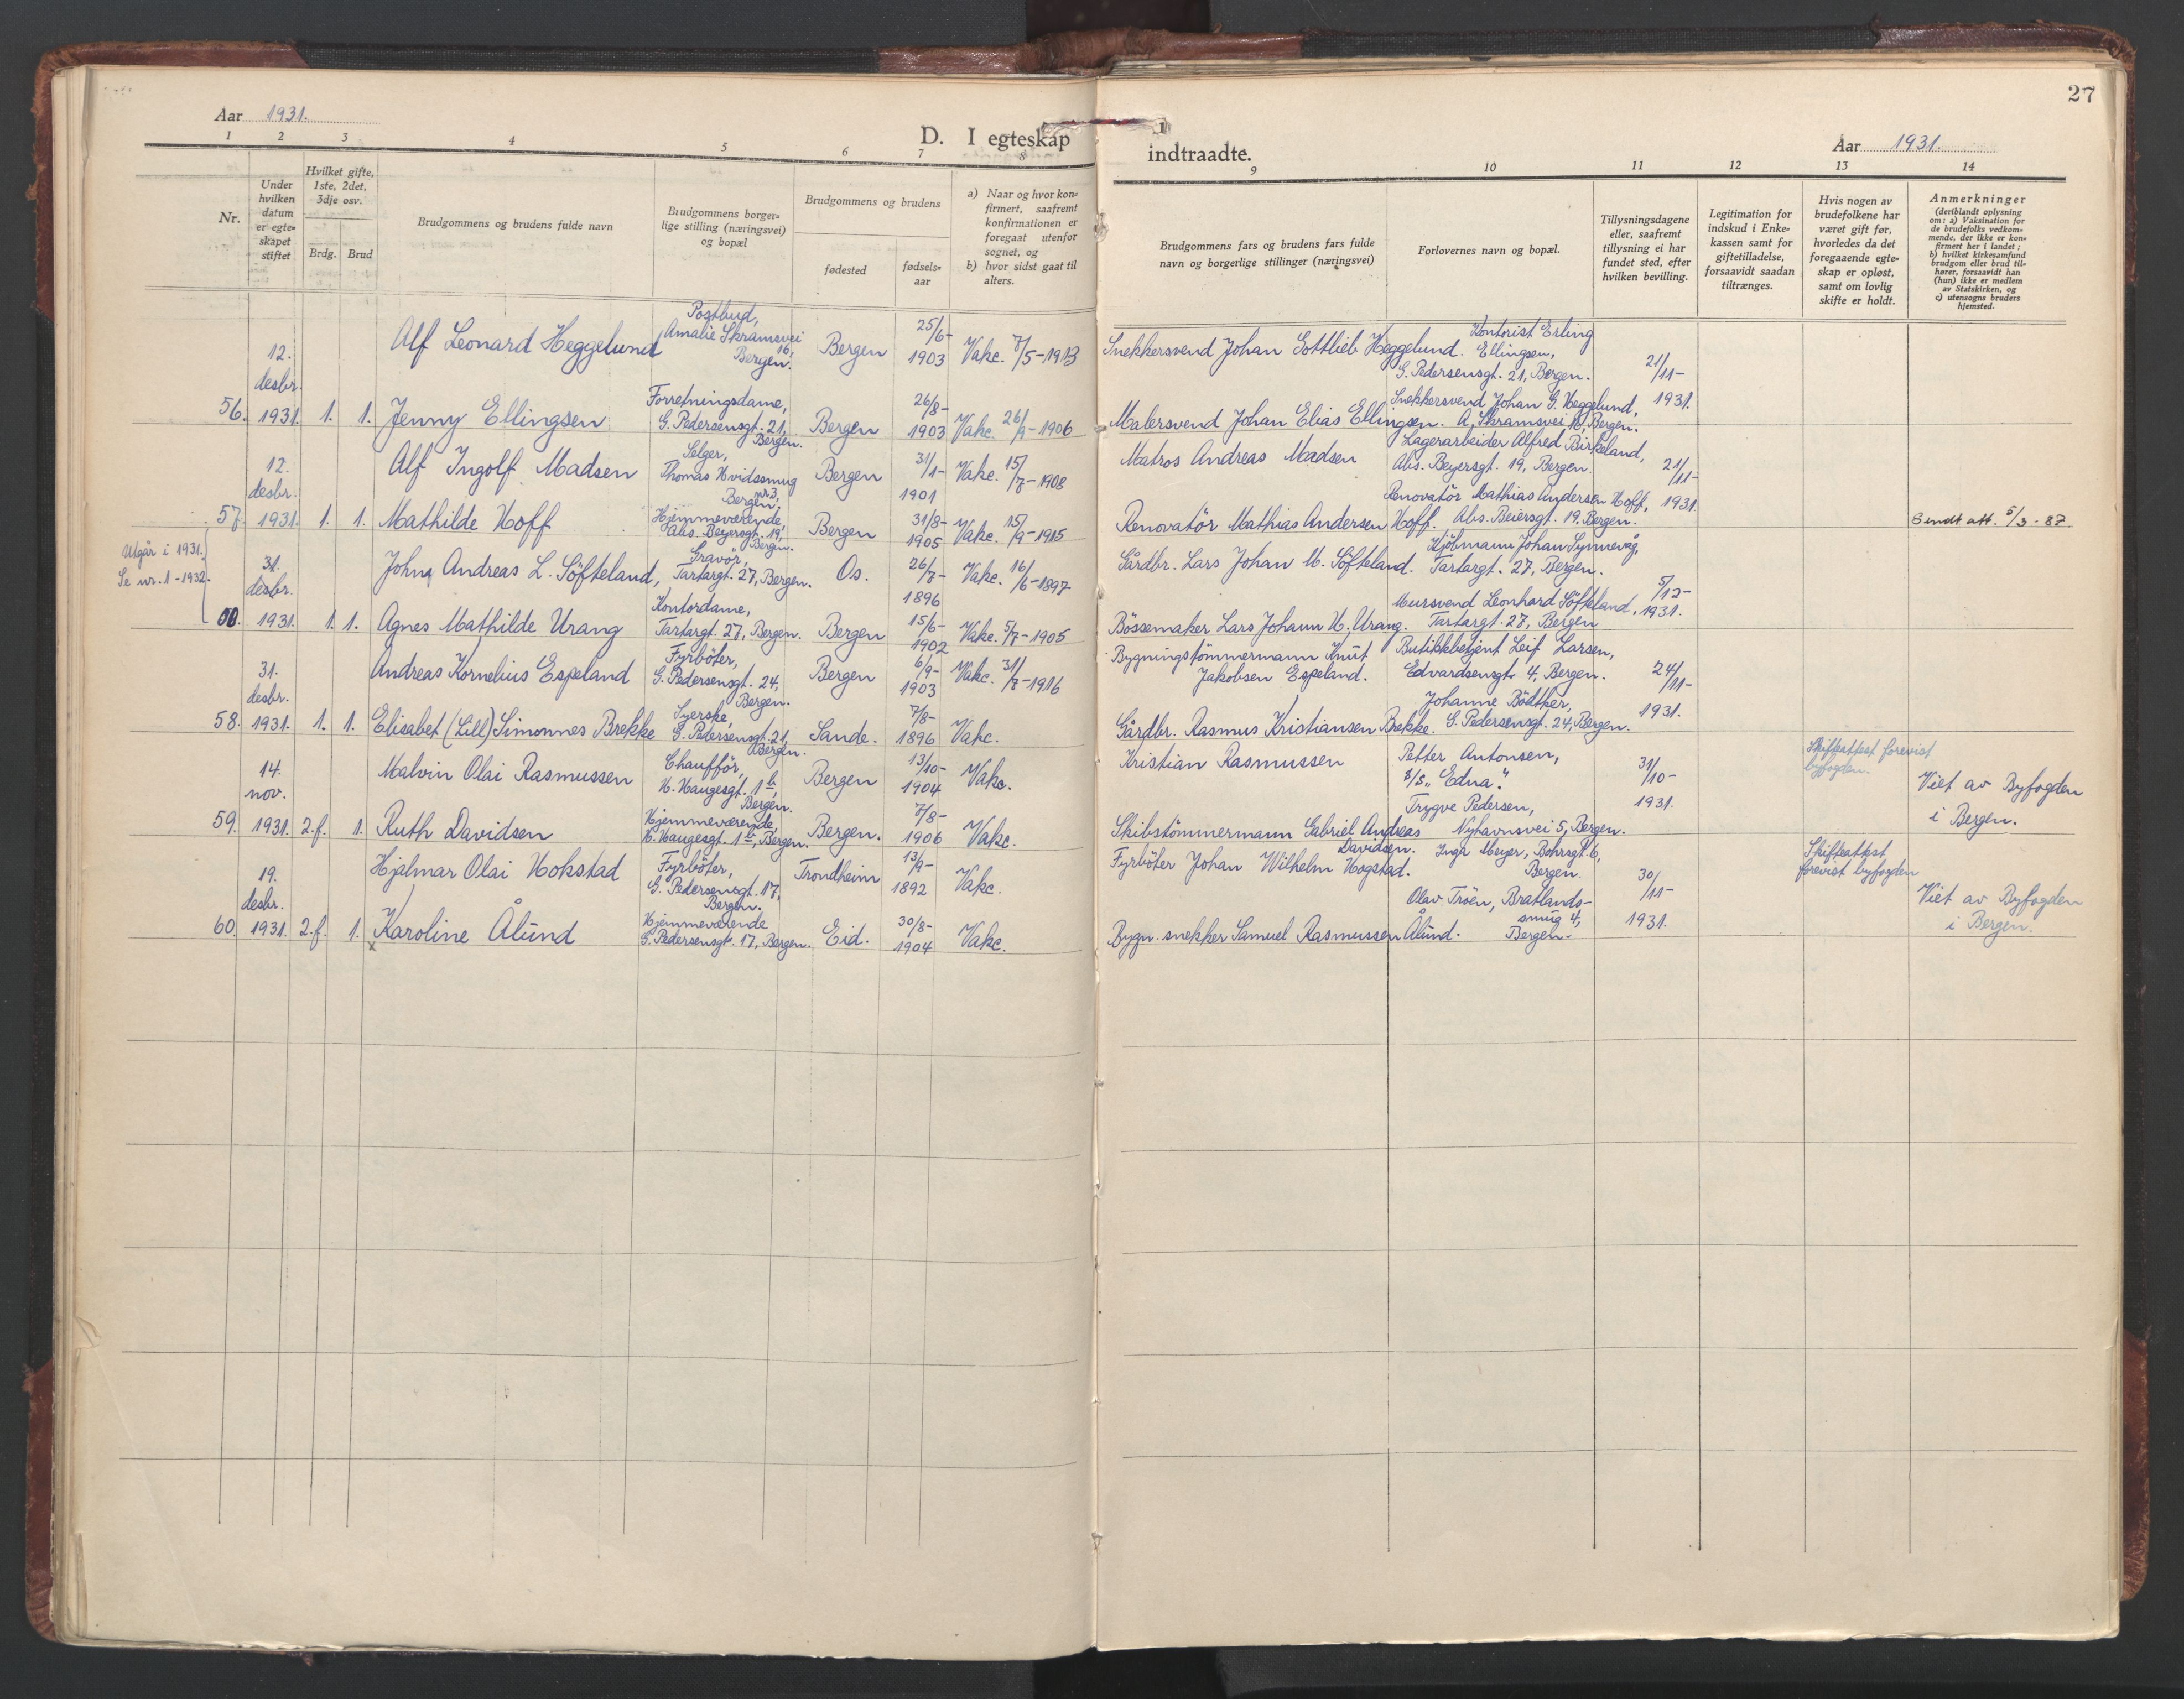 27
Aar 1931.
D. I egteskap
indtraadte.
Aar 1931.
1 2 3 4 5 6 7 8
9 10 11 12 13 14
Nr.
Under hvilken datum er egte-skapet stiftet
Hvilket gifte, 1ste, 2det, 3dje osv.
Brdg. Brud
Brudgommens og brudens fulde navn
Brudgommens borger-lige stilling (næringsvei) og bopæl
Brudgommens og brudens
fødested
fødsels-aar
a) Naar og hvor kon-firmert, saafremt konfirmationen er foregaat utenfor sognet, og
b) hvor sidst gaat til alters.
Brudgommens fars og brudens fars fulde navn og borgerlige stillinger (næringsvei)
Forlovernes navn og bopæl.
Tillysningsdagene eller, saafremt tillysning ei har fundet sted, efter hvilken bevilling.
Legitimation for indskud i Enke-kassen samt for giftetilladelse, forsaavidt saadan tiltrænges.
Hvis nogen av brudefolkene har været gift før, hvorledes da det foregaaende egte-skap er opløst, samt om lovlig skifte er holdt.
Anmerkninger
(deriblandt oplysning om: a) Vaksination for de brudefolks vedkom-mende, der ikke er kon-firmert her i landet; b) hvilket kirkesamfund brudgom eller brud til-hører, forsaavidt han (hun) ikke er medlem av Statskirken, og c) utensogns bruders hjemsted.
56. 12. desbr. 1931. 1. 1.
Alf Leonard Heggelund
Postbud, Amalie Skramsvei 16, Bergen.
Bergen 25/6-1903 Vakc. 7/5-1913
Snekkersvend Johan Gottlieb Heggelund.
Kontorist Erling Ellingsen, G. Pedersensgt. 21, Bergen.
21/11-1931.
Jenny Ellingsen
Forretningsdame, G. Pedersensgt. 21, Bergen.
Bergen 26/8-1903 Vakc. 26/9-1906
Malersvend Johan Elias Ellingsen.
Snekkersvend Johan G. Heggelund, A. Skramsvei 16, Bergen.
57. 12. desbr. 1931. 1. 1.
Alf Ingolf Madsen
Selger, Thomas Hvidssmug nr 3, Bergen.
Bergen 31/1-1901 Vakc. 15/7-1908
Matros Andreas Madsen
Lagerarbeider Alfred Birkeland, Abs. Beyersgt. 19, Bergen.
21/11-1931.
Mathilde Hoff
Hjemmeværende, Abs. Beyersgt. 19, Bergen.
Bergen 31/8-1905 Vakc. 15/9-1915
Renovatör Mathias Andersen Hoff.
Renovatör Mathias Andersen Hoff, Abs. Beiersgt. 19. Bergen.
Sendt att. 5/3-87
Utgår i 1931. Se nr. 1-1932.
31. desbr. 1931. 1. 1.
John Andreas L. Söfteland,
Gravör, Tartargt. 27, Bergen.
Os. 26/7-1896 Vakc. 16/6-1897
Gårdbr. Lars Johan M. Söfteland.
Kjöbmann Johan Synnevåg, Tartargt. 27, Bergen.
5/12-1931.
Agnes Mathilde Urang
Kontordame, Tartargt. 27, Bergen.
Bergen 15/6-1902 Vakc. 5/7-1905
Bössemaker Lars Johann H. Urang.
Mursvend Leonhard Söfteland, Tartargt. 27, Bergen
58. 31. desbr. 1931. 1. 1.
Andreas Kornelius Espeland
Fyrböter, G. Pedersensgt. 24, Bergen.
Bergen 6/9-1903 Vakc. 31/8-1916
Bygningstömmermann Knut Jakobsen Espeland.
Butikkbetjent Leif Larsen, Edvardsensgt 4, Bergen.
24/11-1931.
Elisabet (Lill) Simonnes Brekke
Syerske, G. Pedersensgt. 21, Bergen.
Sande. 7/8-1896 Vakc.
Gårdbr. Rasmus Kristiansen Brekke.
Johanne Bödtker, G. Pedersensgt. 24, Bergen.
59. 14. nov. 1931. 2.f. 1.
Malvin Olai Rasmussen
Chaufför, H. Haugesgt. 1b, Bergen.
Bergen 13/10-1904 Vakc.
Kristian Rasmussen
Petter Antonsen, S/S "Edna".
31/10-1931.
Skifteattest forevist byfogden.
Viet av Byfogden i Bergen.
Ruth Davidsen
Hjemmeværende, H. Haugesgt. 1b, Bergen.
Bergen. 7/8-1906 Vakc.
Skibstömmermann Gabriel Andreas Davidsen.
Trygve Pedersen, Nyhavnsvei 5, Bergen.
60. 19. desbr. 1931. 2.f. 1.
Hjalmar Olai Hokstad
Fyrböter, G. Pedersensgt. 17, Bergen.
Trondheim 13/9-1892 Vakc.
Fyrböter Johan Wilhelm Hogstad.
Inga Meyer, Bohrsgt. 6, Bergen.
30/11-1931.
Skifteattest forevist byfogden
Viet av Byfogden i Bergen.
x Karoline Ålund
Hjemmeværende G. Pedersensgt. 17, Bergen.
Eid. 30/8-1904 Vakc.
Bygn. snekker Samuel Rasmussen Ålund.
Olav Tröen, Bratlands-smug 4, Bergen.